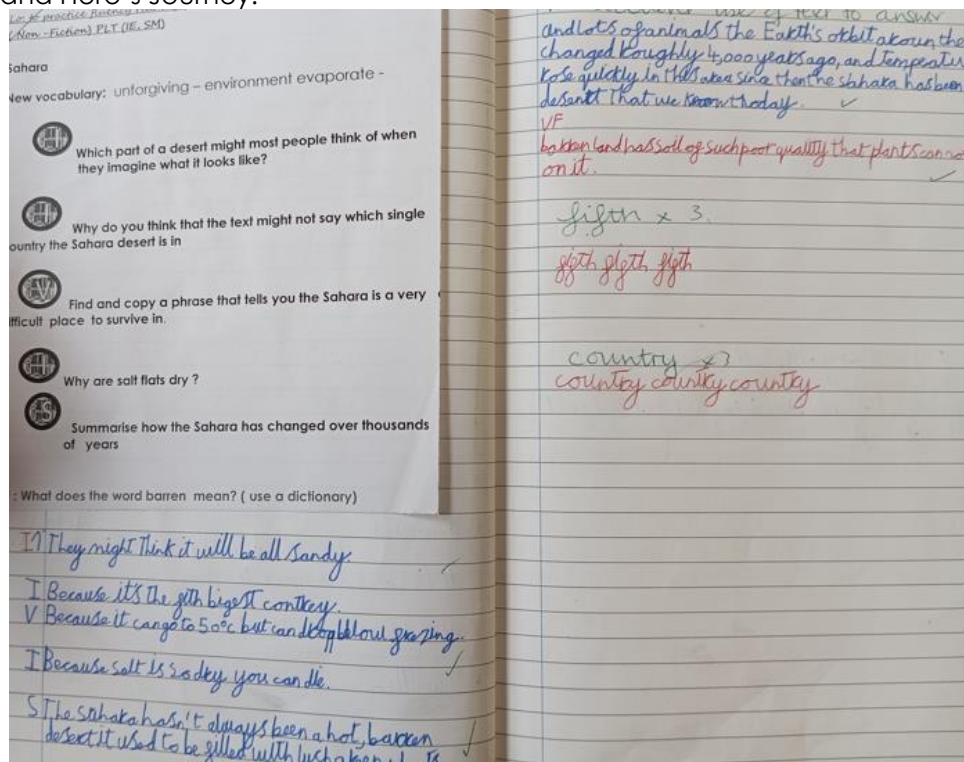 and Hero's Journey.
Lo: to practice fluency
(Non-Fiction) PLT (IE, SM)
Sahara
New vocabulary: unforgiving – environment evaporate -
Which part of a desert might most people think of when
they imagine what it looks like?
Why do you think that the text might not say which single
ountry the Sahara desert is in
Find and copy a phrase that tells you the Sahara is a very
fficult place to survive in.
Why are salt flats dry ?
Summarise how the Sahara has changed over thousands
of years
: What does the word barren mean? ( use a dictionary)
I1 They might Think it will be all sandy.
I Because it's the gith bigest contrey.
V Because it can go to 50°c but can drop blowl grezing.
I Because salt is so dry you can die.
S The sahara hasn't always been a hot, barren
desert it used to be gilled with lush
use of text to answer
and Lots of animals the Earth's orbit akoun the
changed Roughly 4,000 years ago, and Temperatu
rose quickly in this area since then the sahara has been
desertt That we know thoday.
VF
barren land has soil of such poor quality that plants canno
on it.
fifth x 3.
gigth gigth gigth
country x3
country country country